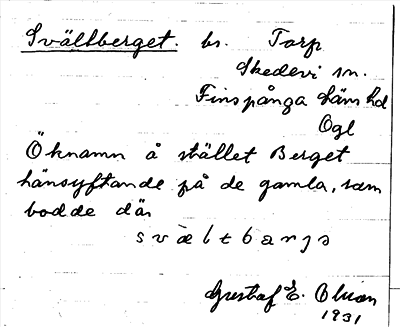 Svältberget. bs. Torp
Skedevi sn.
Finspånga läns hd
Ögl
Öknamn å stället Berget
hänsyftande på de gamla, som
bodde där
svæltbærjə
Gustaf E. Olson
1931